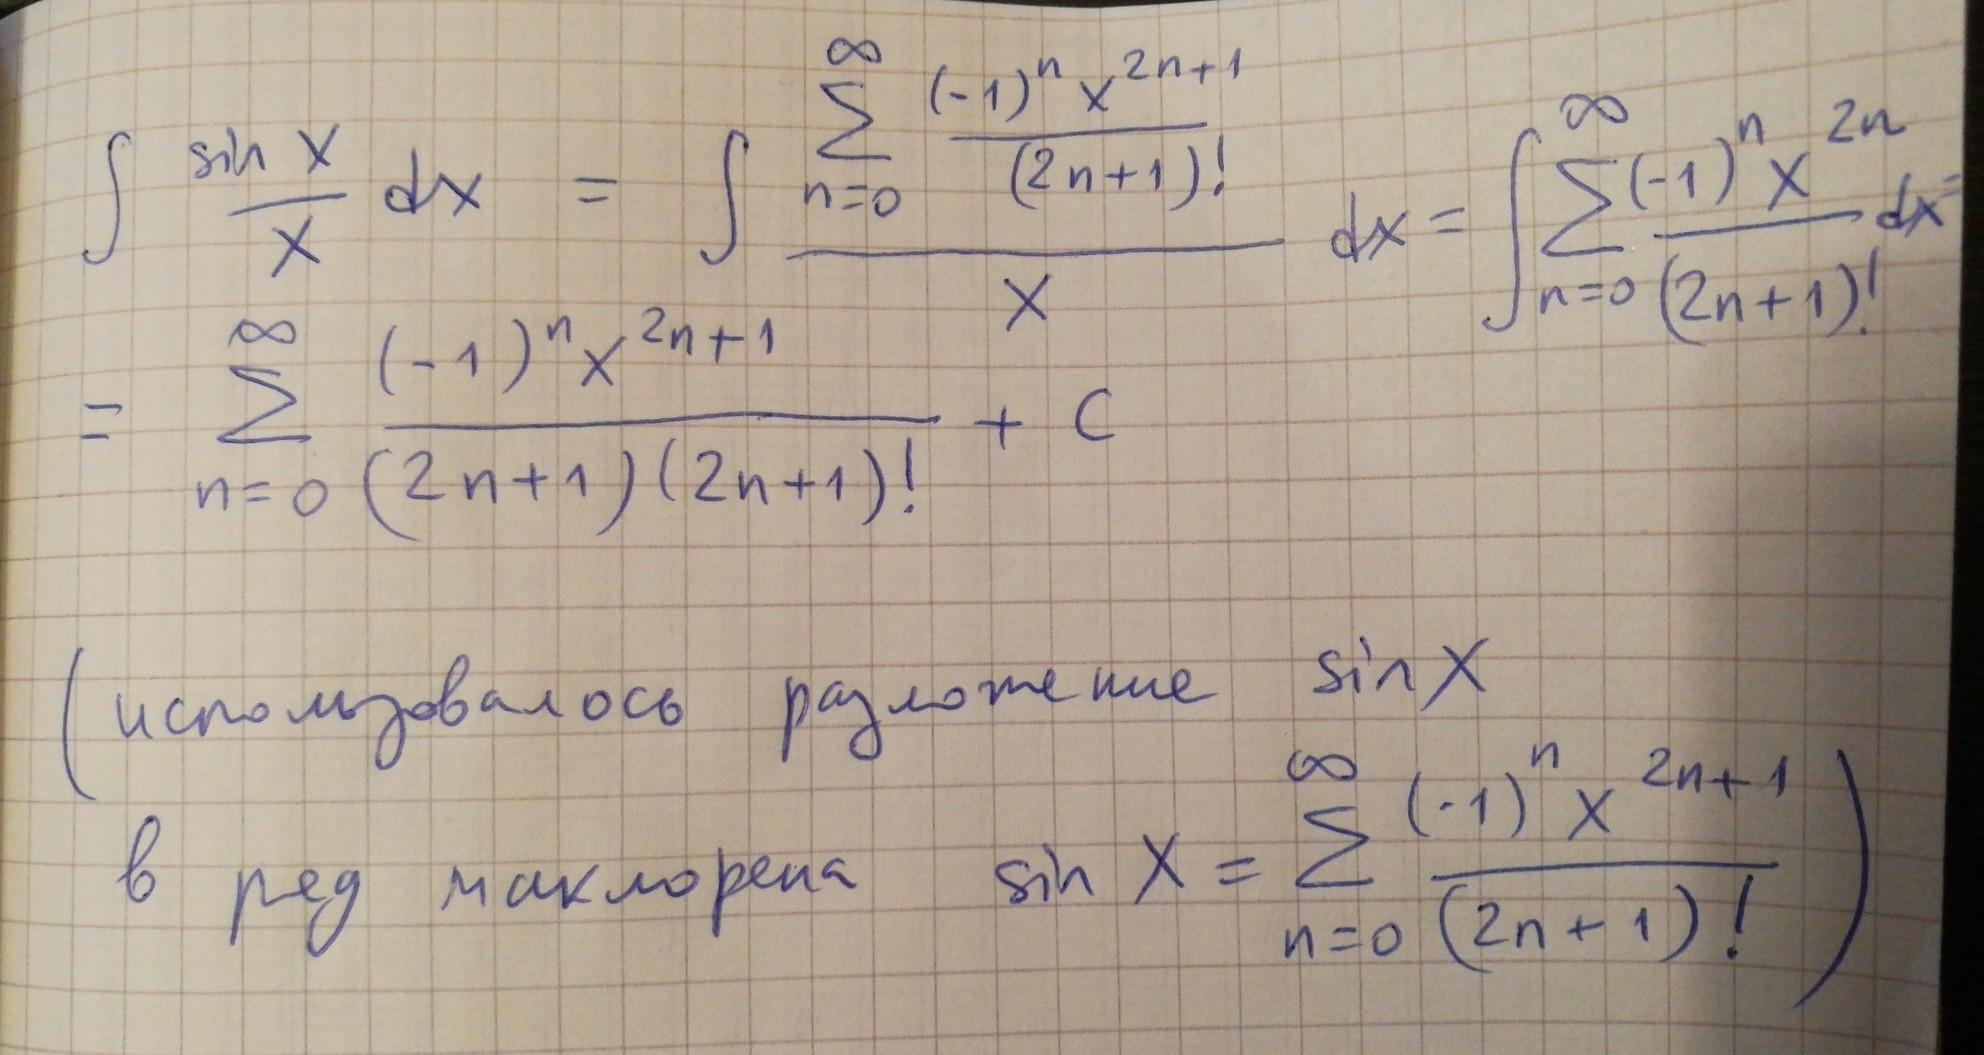 ∫ sin x / x dx = ∫ (∑_{n=0}^{∞} (-1)^n x^{2n+1} / (2n+1)!) / x dx = ∫ ∑_{n=0}^{∞} (-1)^n x^{2n} / (2n+1)! dx =
= ∑_{n=0}^{∞} (-1)^n x^{2n+1} / (2n+1)(2n+1)! + C
(использовалось разложение sin x
в ряд маклорена sin x = ∑_{n=0}^{∞} (-1)^n x^{2n+1} / (2n+1)! )